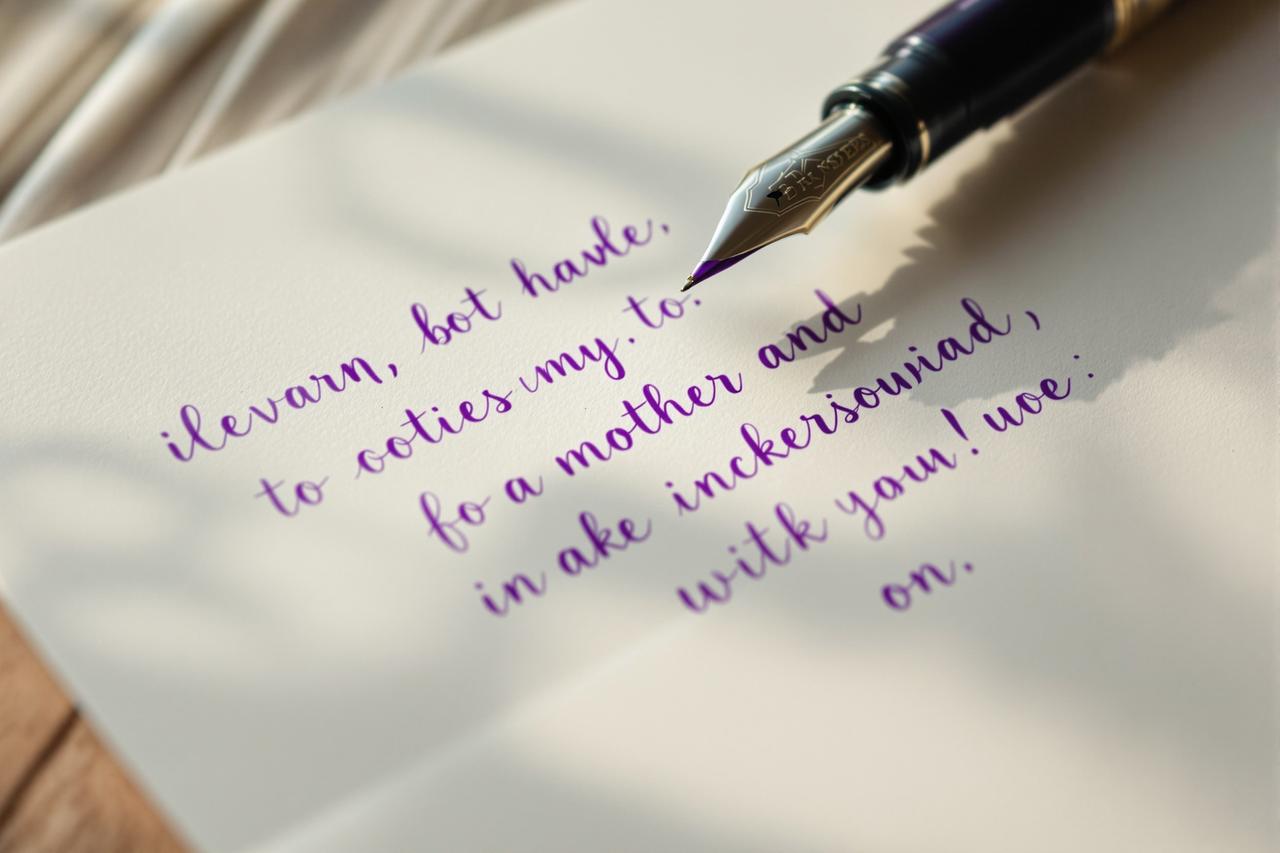 ilevarn, bot havle,
to ooties my. to.
fo a mother and
in ake inckersouviad,
witk yam! uoe:
on.